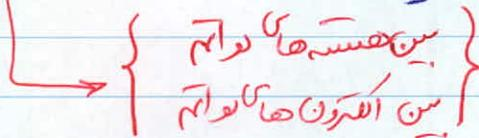 بین هسته های دو اتم
بین الکترون های دو اتم